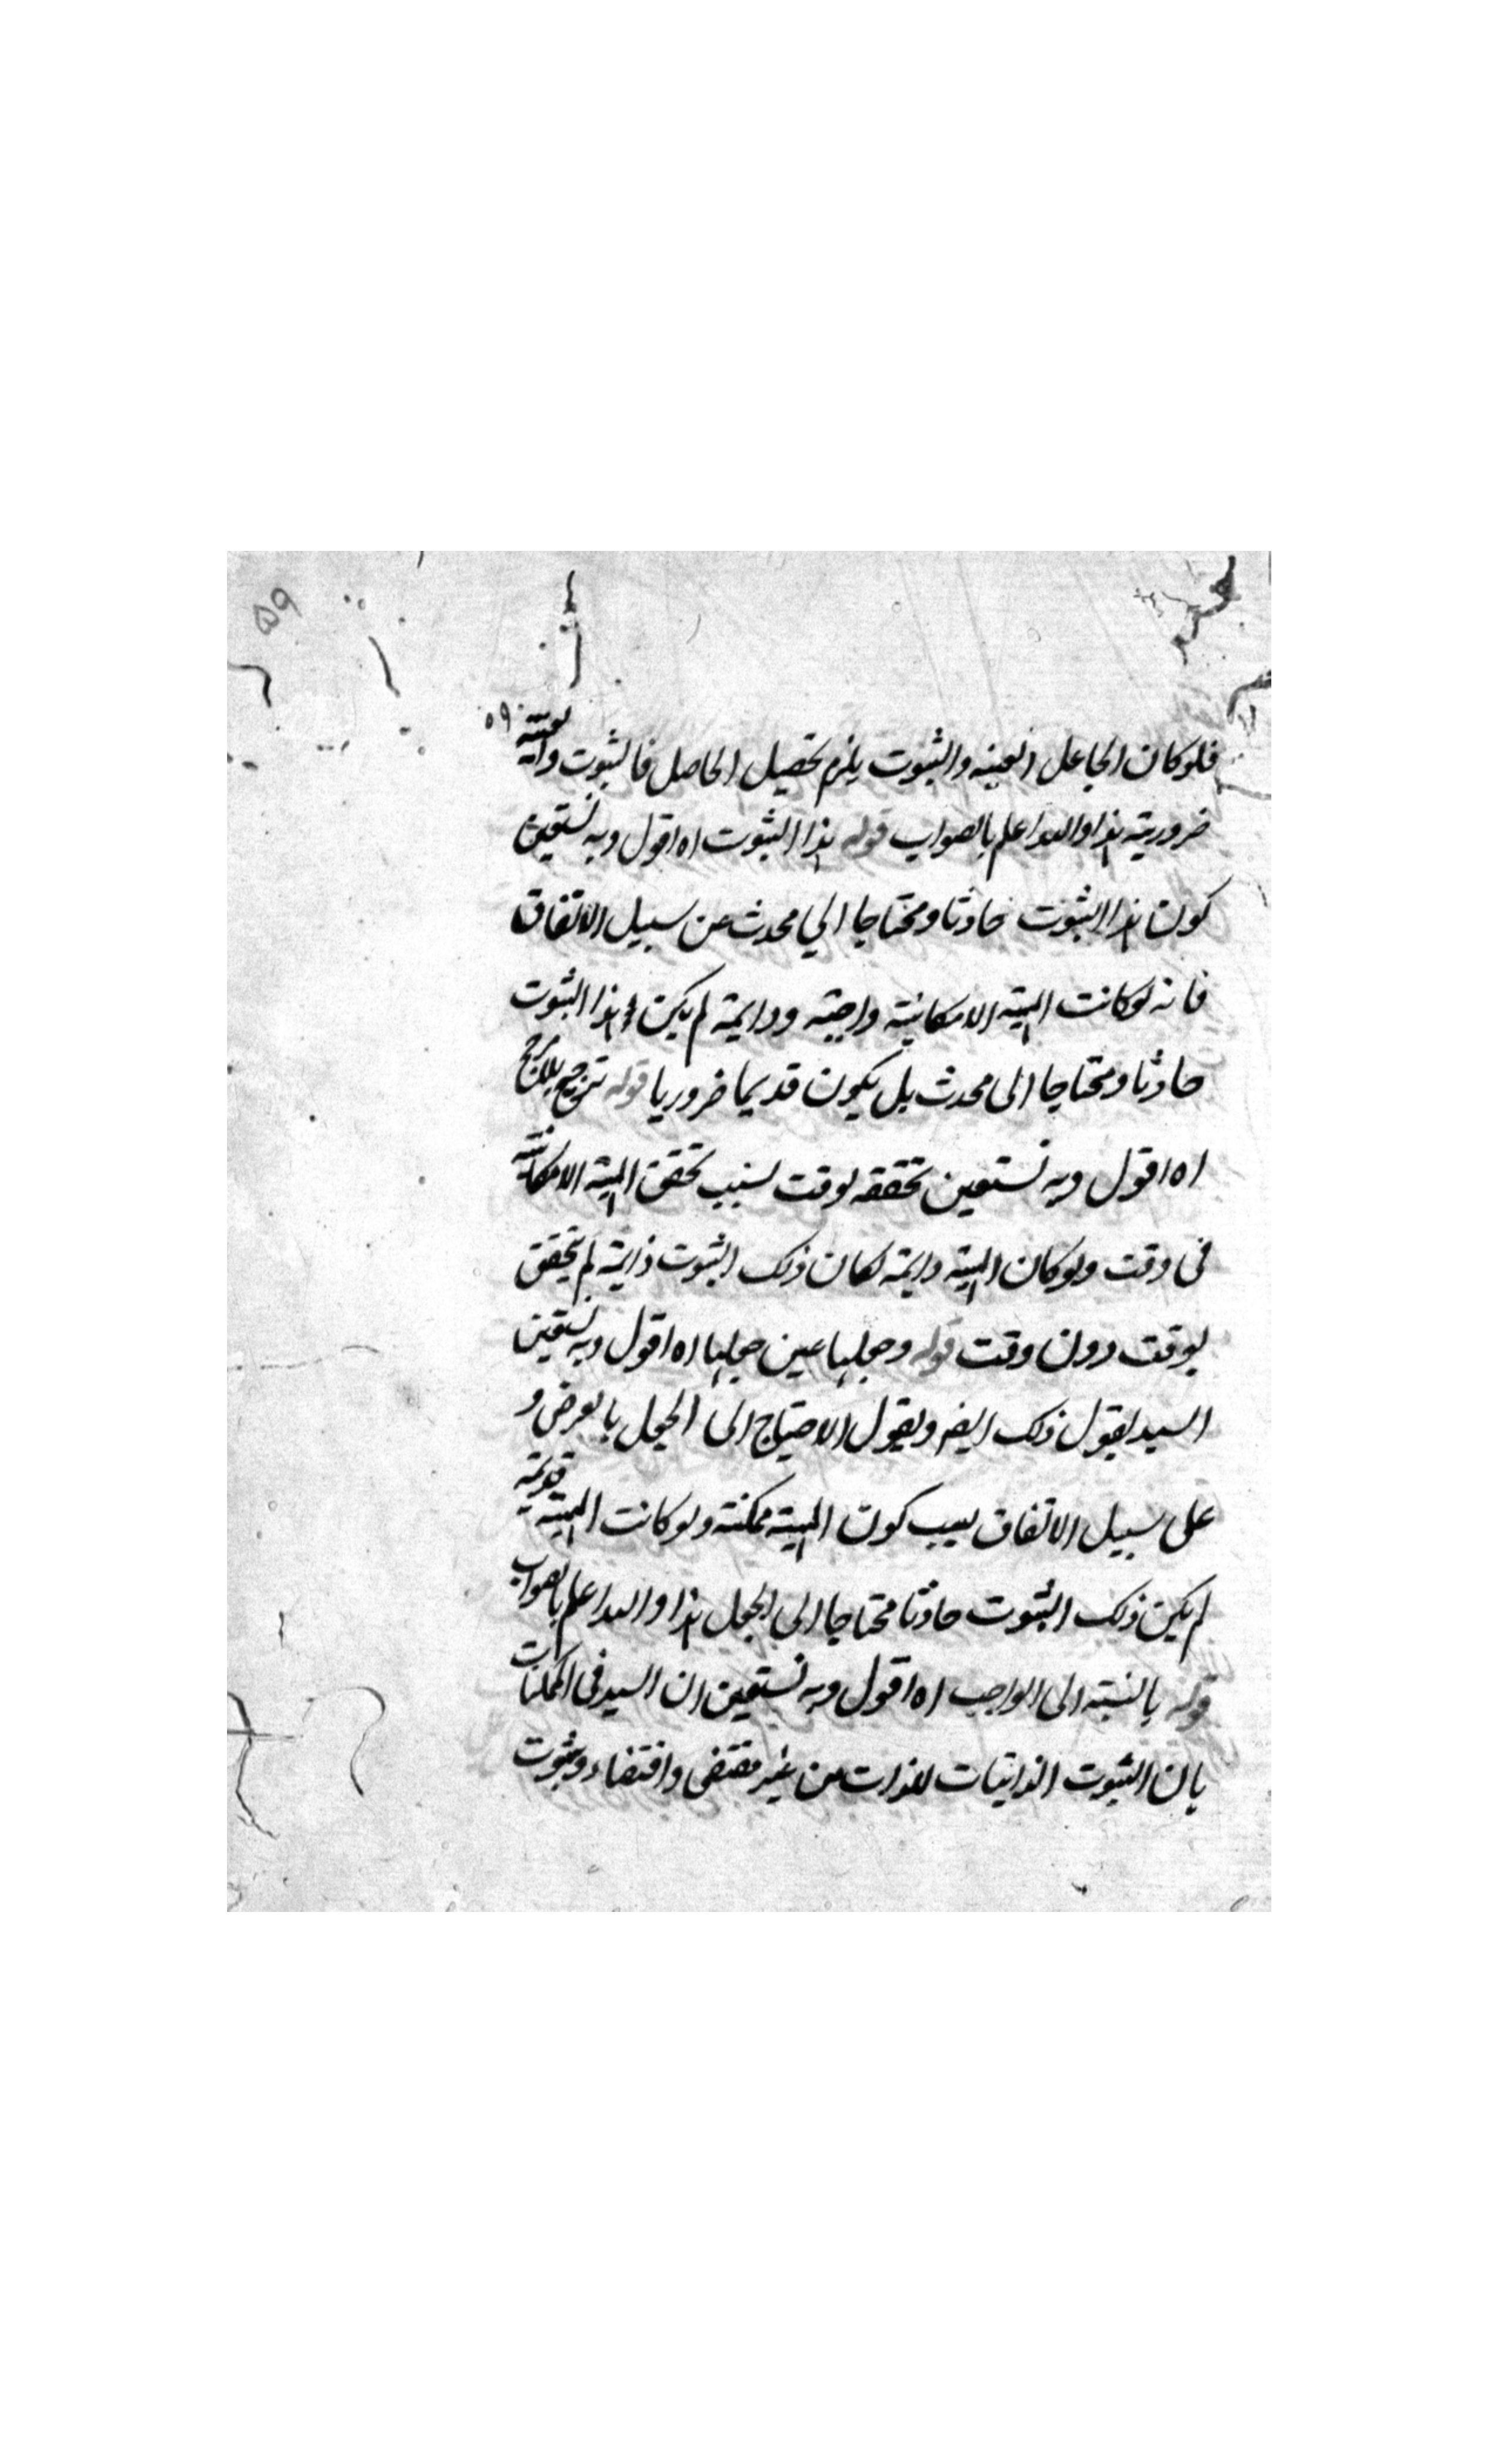 ٥٩
٥٩
فلو كان الجاعل العينه والثبوت يلزم تحصيل الحاصل فالثبوت واقعية
ضرورية هذا والله اعلم بالصواب قوله هذا الثبوت اه اقول وبه نستعين
كون هذا الثبوت حادثا ومحتاجا الي محدث عن سبيل الاتفاق
فانه لو كانت المهية الامكانية واجبة ودائمة لم يكن هذا الثبوت
حادثا ومحتاجا الى محدث بل يكون قديما ضروريا قوله ترجيح بلا مرجح
اه اقول وبه نستعين تحققه لوقت بسبب تحقق المهية الامكانية
في وقت ولو كان المهية دائمة لكان ذلك الثبوت دائمة لم يتحقق
لوقت دون وقت قوله وجعلها عين جعلها اه اقول وبه نستعين
السيد يقول ذلك ايضه ويقول الاحتياج الى الجعل بالعرض و
على سبيل الاتفاق بسبب كون المهية ممكنة ولو كانت المهية قديمة
لم يكن ذلك الثبوت حادثا محتاجا الى الجعل هذا والله اعلم بالصواب
قوله بالنسبة الى الواجب اه اقول وبه نستعين ان السيد في الممكنات
بان الثبوت الذاتيات للذات من غير مقتضى واقتضاء وثبوت